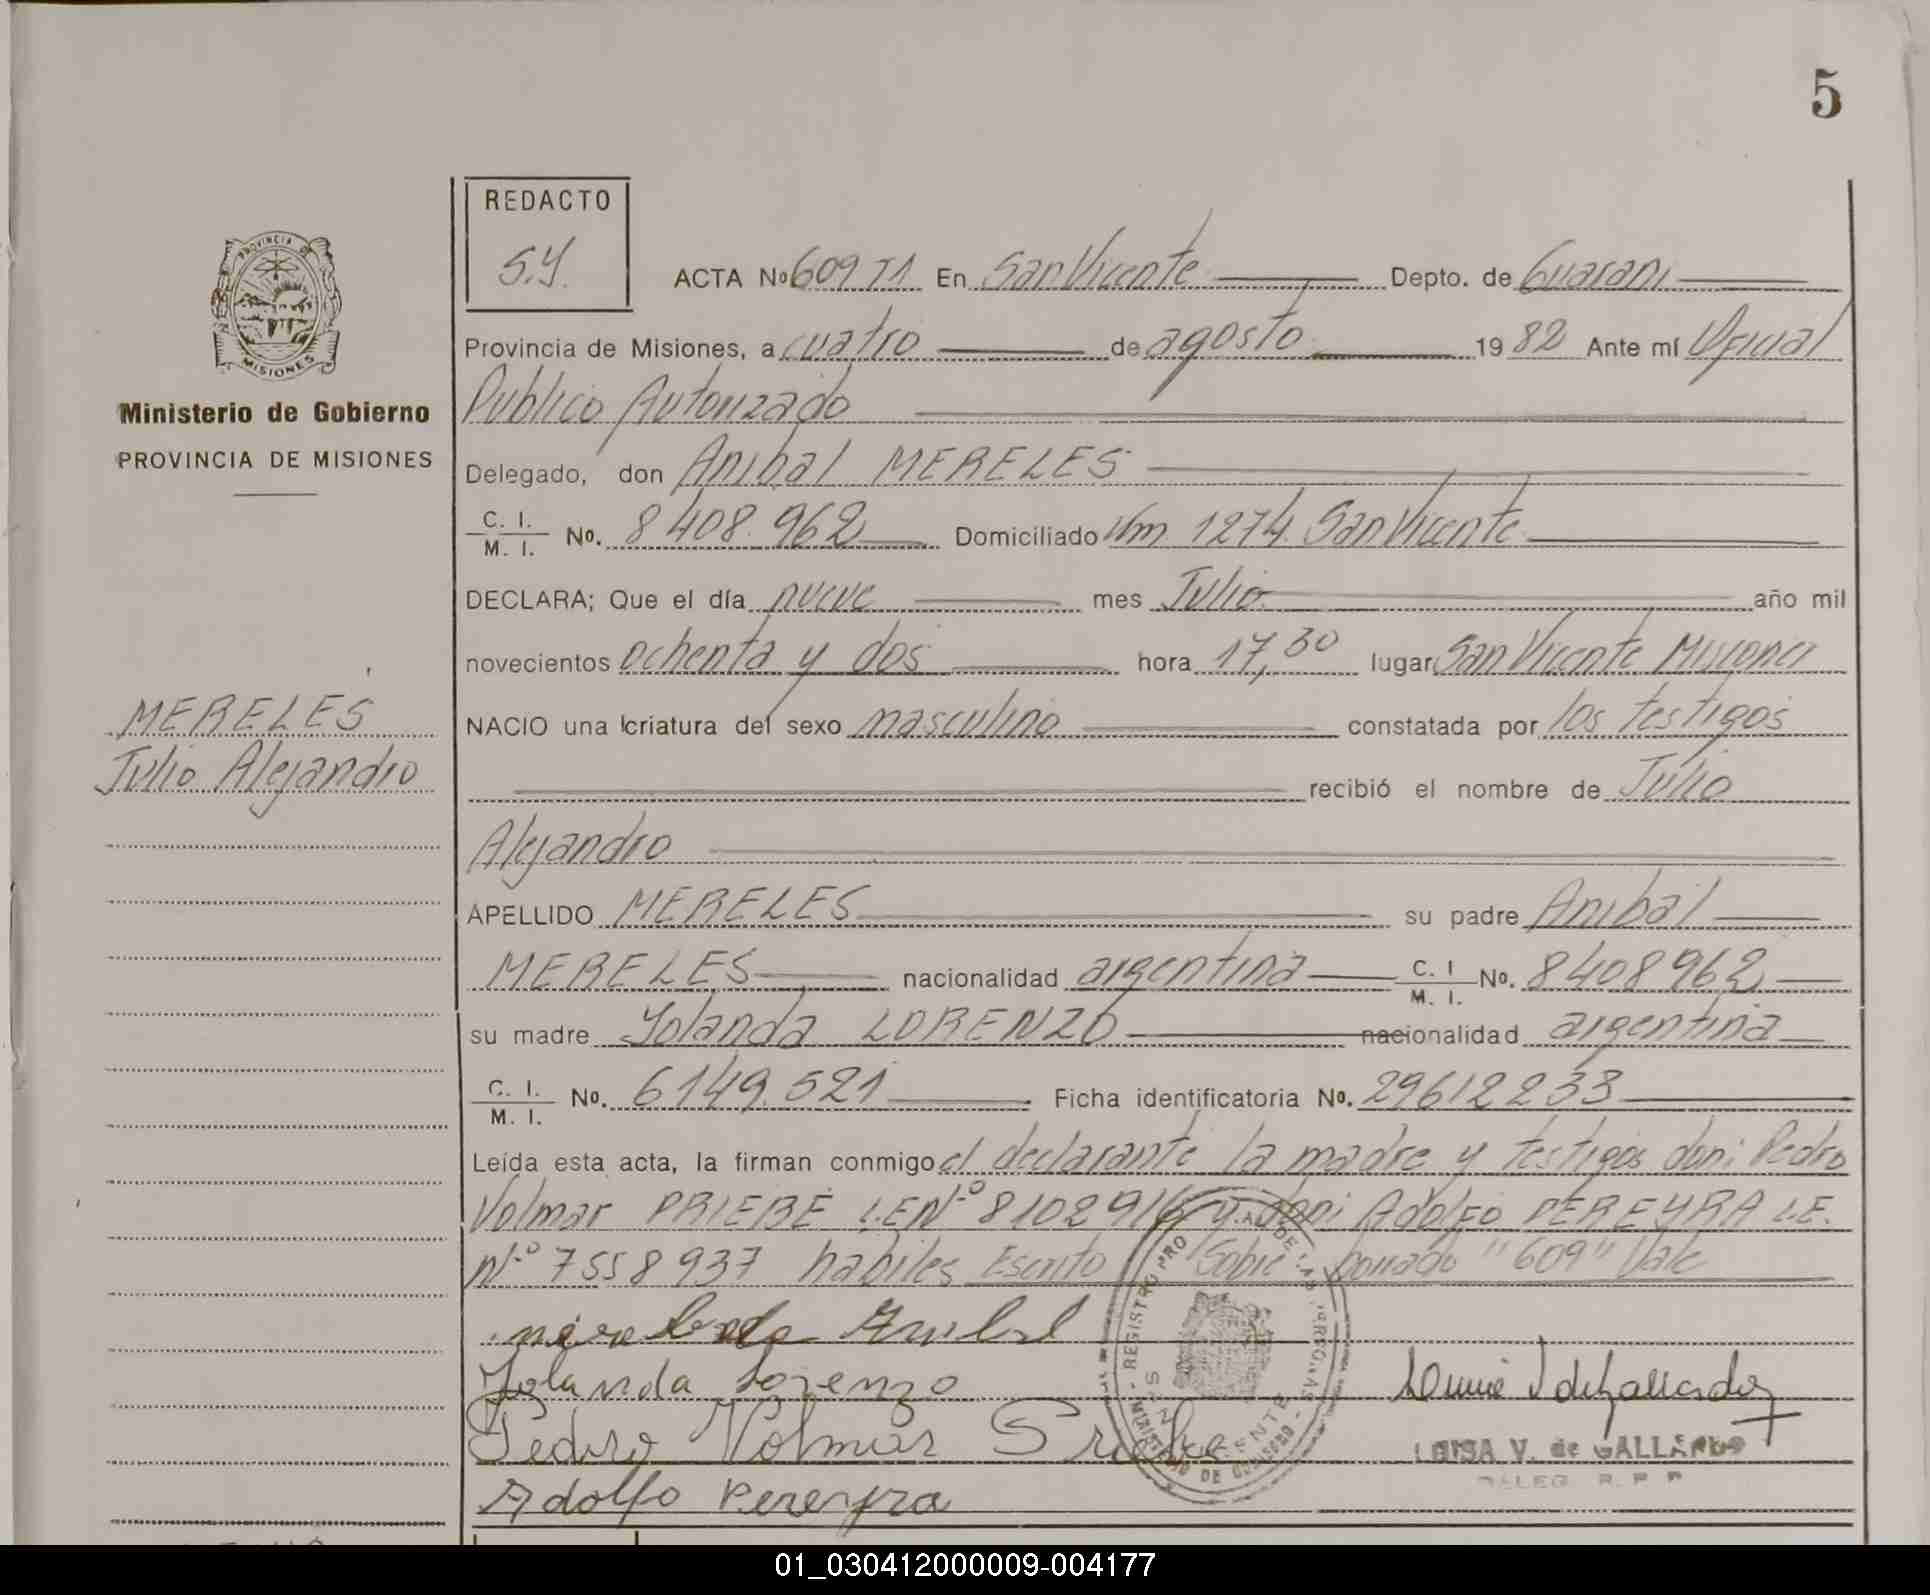 5
REDACTO
S.Y.
ACTA No 609 T1 En San Vicente Depto. de Guarani
Provincia de Misiones, a cuatro de agosto 1982 Ante mí Oficial
Publico Autorizado
Delegado, don Anibal MERELES
C. I. M. I. No. 8408.962 Domiciliado Km 1274 San Vicente
DECLARA; Que el día nueve mes Julio año mil
novecientos ochenta y dos hora 17,30 lugar San Vicente Misiones
NACIO una criatura del sexo masculino constatada por los testigos
recibió el nombre de Julio
Alejandro
APELLIDO MERELES su padre Anibal
MERELES nacionalidad argentina C. I M. I. No. 8408962
su madre Yolanda LORENZO nacionalidad argentina
C. I. M. I. No. 6149.521 Ficha identificatoria No. 29612233
Leída esta acta, la firman conmigo el declarante la madre y testigos don: Pedro
Volmar PRIEBE L.E Nº 8102916 y don: Adolfo PEREYRA L.E.
nº 7558937 habiles Escrito Sobre borrado "609" Vale
Yolanda Lorenzo
Pedro Volmar Priebe
Adolfo Pereyra
LUISA V. de GALLARDO
DELEG. R. P. P
PROVINCIA DE
MISIONES
Ministerio de Gobierno
PROVINCIA DE MISIONES
MERELES
Julio Alejandro
REGISTRO PRO AL DE LAS PERSONAS
MINISTERIO DE GOBIERNO
01_030412000009-004177